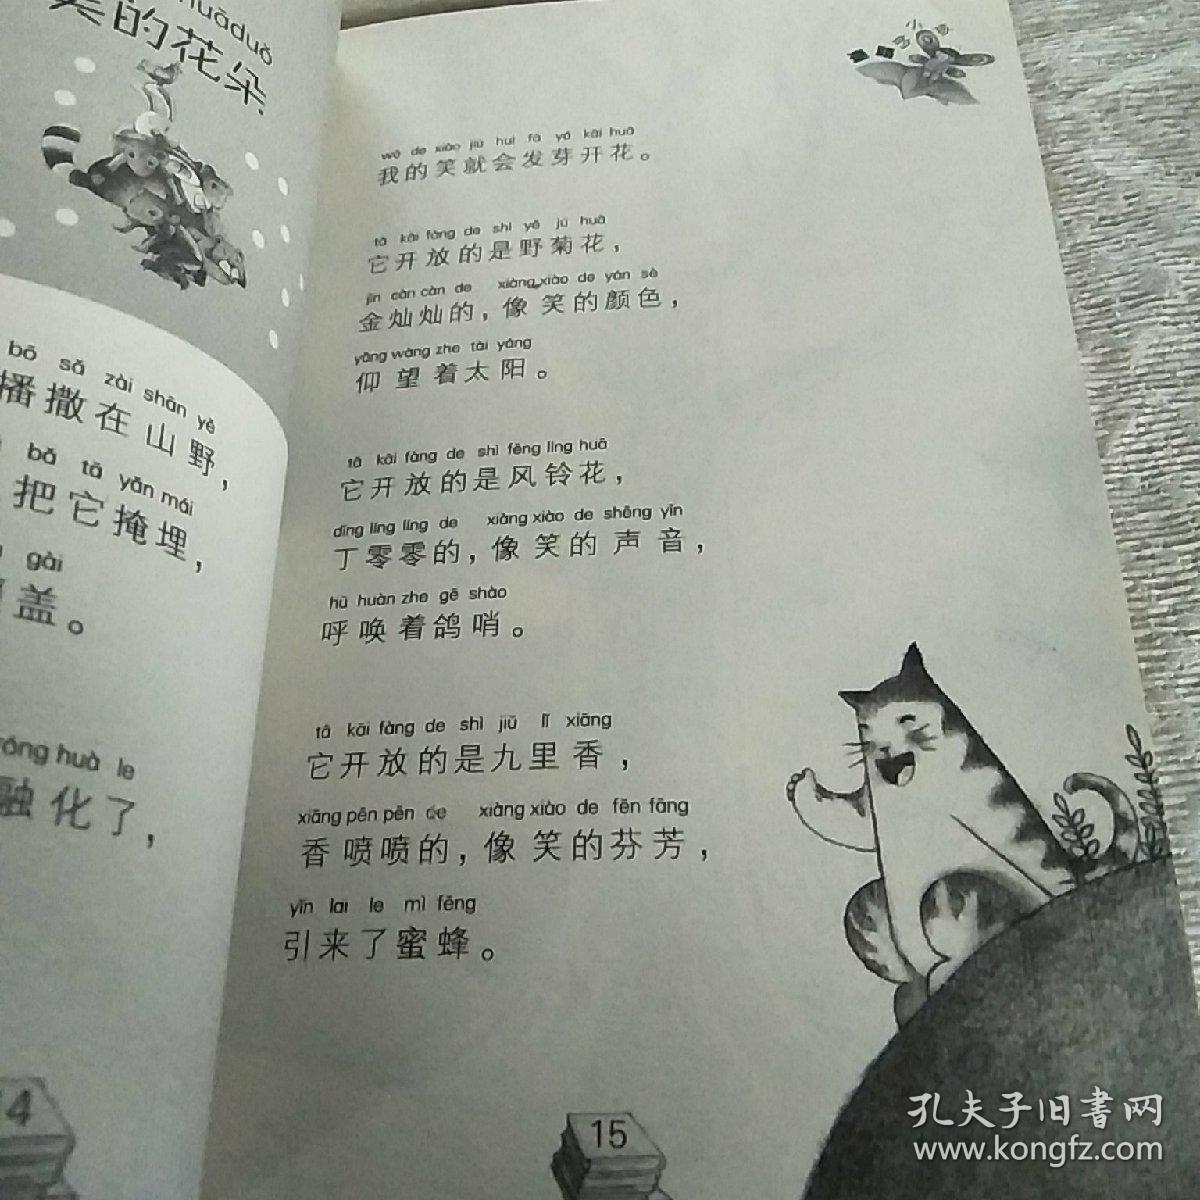 huāduǒ
的花朵
bō sǎ zài shān yě
播撒在山野，
bǎ tā yǎn mái
把它掩埋，
gài
盖。
róng huà le
融化了，
14
wǒ de xiào jiù huì fā yá kāi huā
我的笑就会发芽开花。
tā kāi fàng de shì yě jú huā
它开放的是野菊花，
jīn càn càn de xiàng xiào de yán sè
金灿灿的，像笑的颜色，
yǎng wàng zhe tài yáng
仰望着太阳。
tā kāi fàng de shì fēng líng huā
它开放的是风铃花，
dīng líng líng de xiàng xiào de shēng yīn
丁零零的，像笑的声音，
hū huàn zhe gē shào
呼唤着鸽哨。
tā kāi fàng de shì jiǔ lǐ xiāng
它开放的是九里香，
xiāng pēn pēn de xiàng xiào de fēn fāng
香喷喷的，像笑的芬芳，
yǐn lai le mì fēng
引来了蜜蜂。
15
孔夫子旧書网
www.kongfz.com